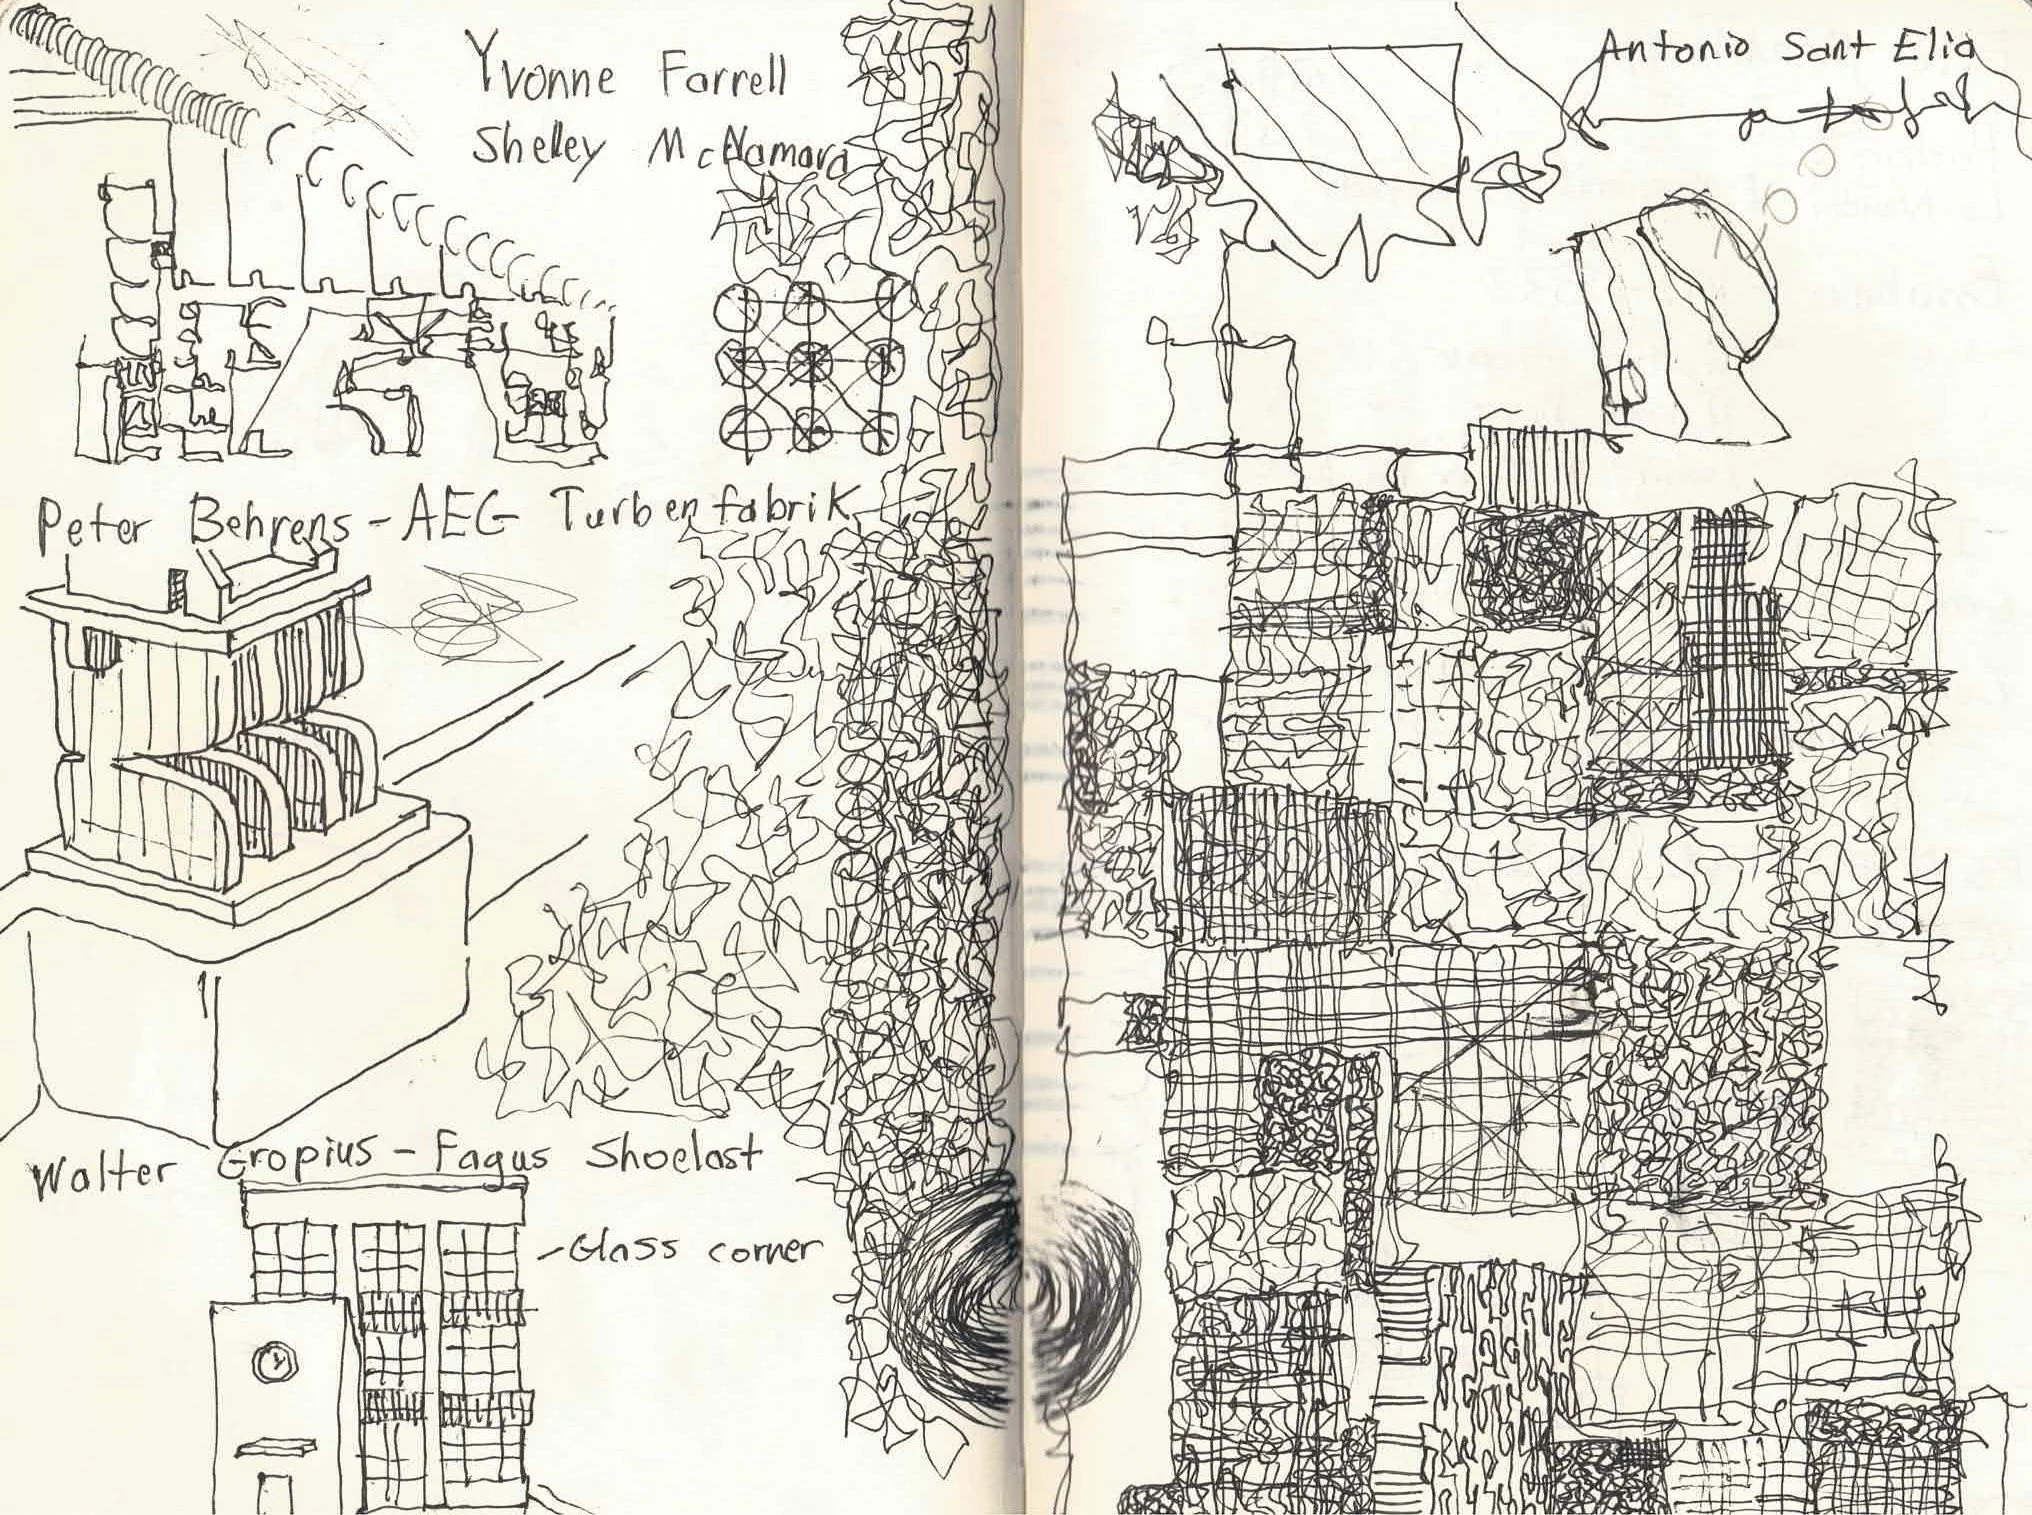 Yvonne Farrell
Shelley McNamara
Peter Behrens - AEG Turbenfabrik
Walter Gropius - Fagus Shoelast
- Glass corner
Antonio Sant Elia